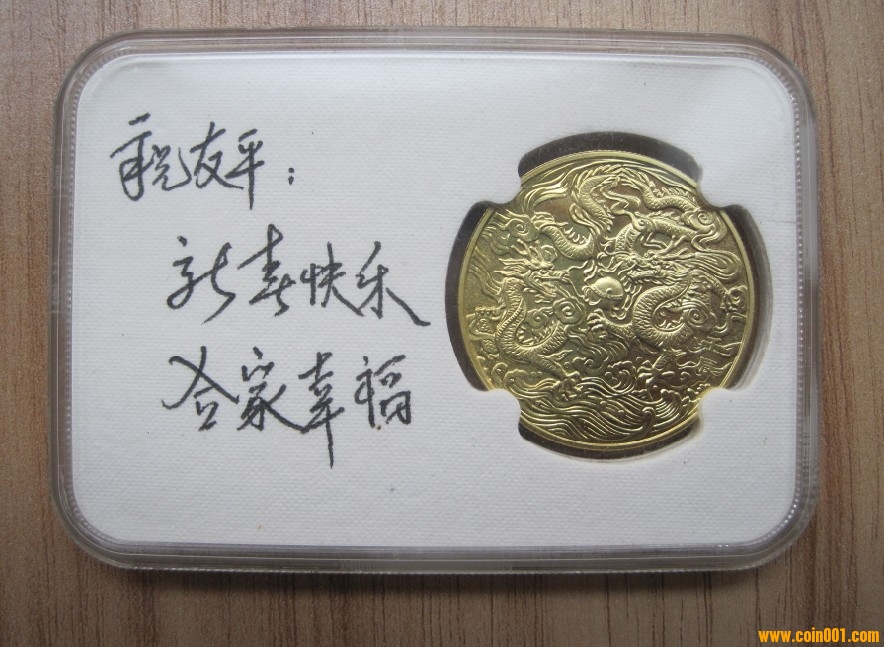 祝友平：
新春快乐
合家幸福
www.coin001.com